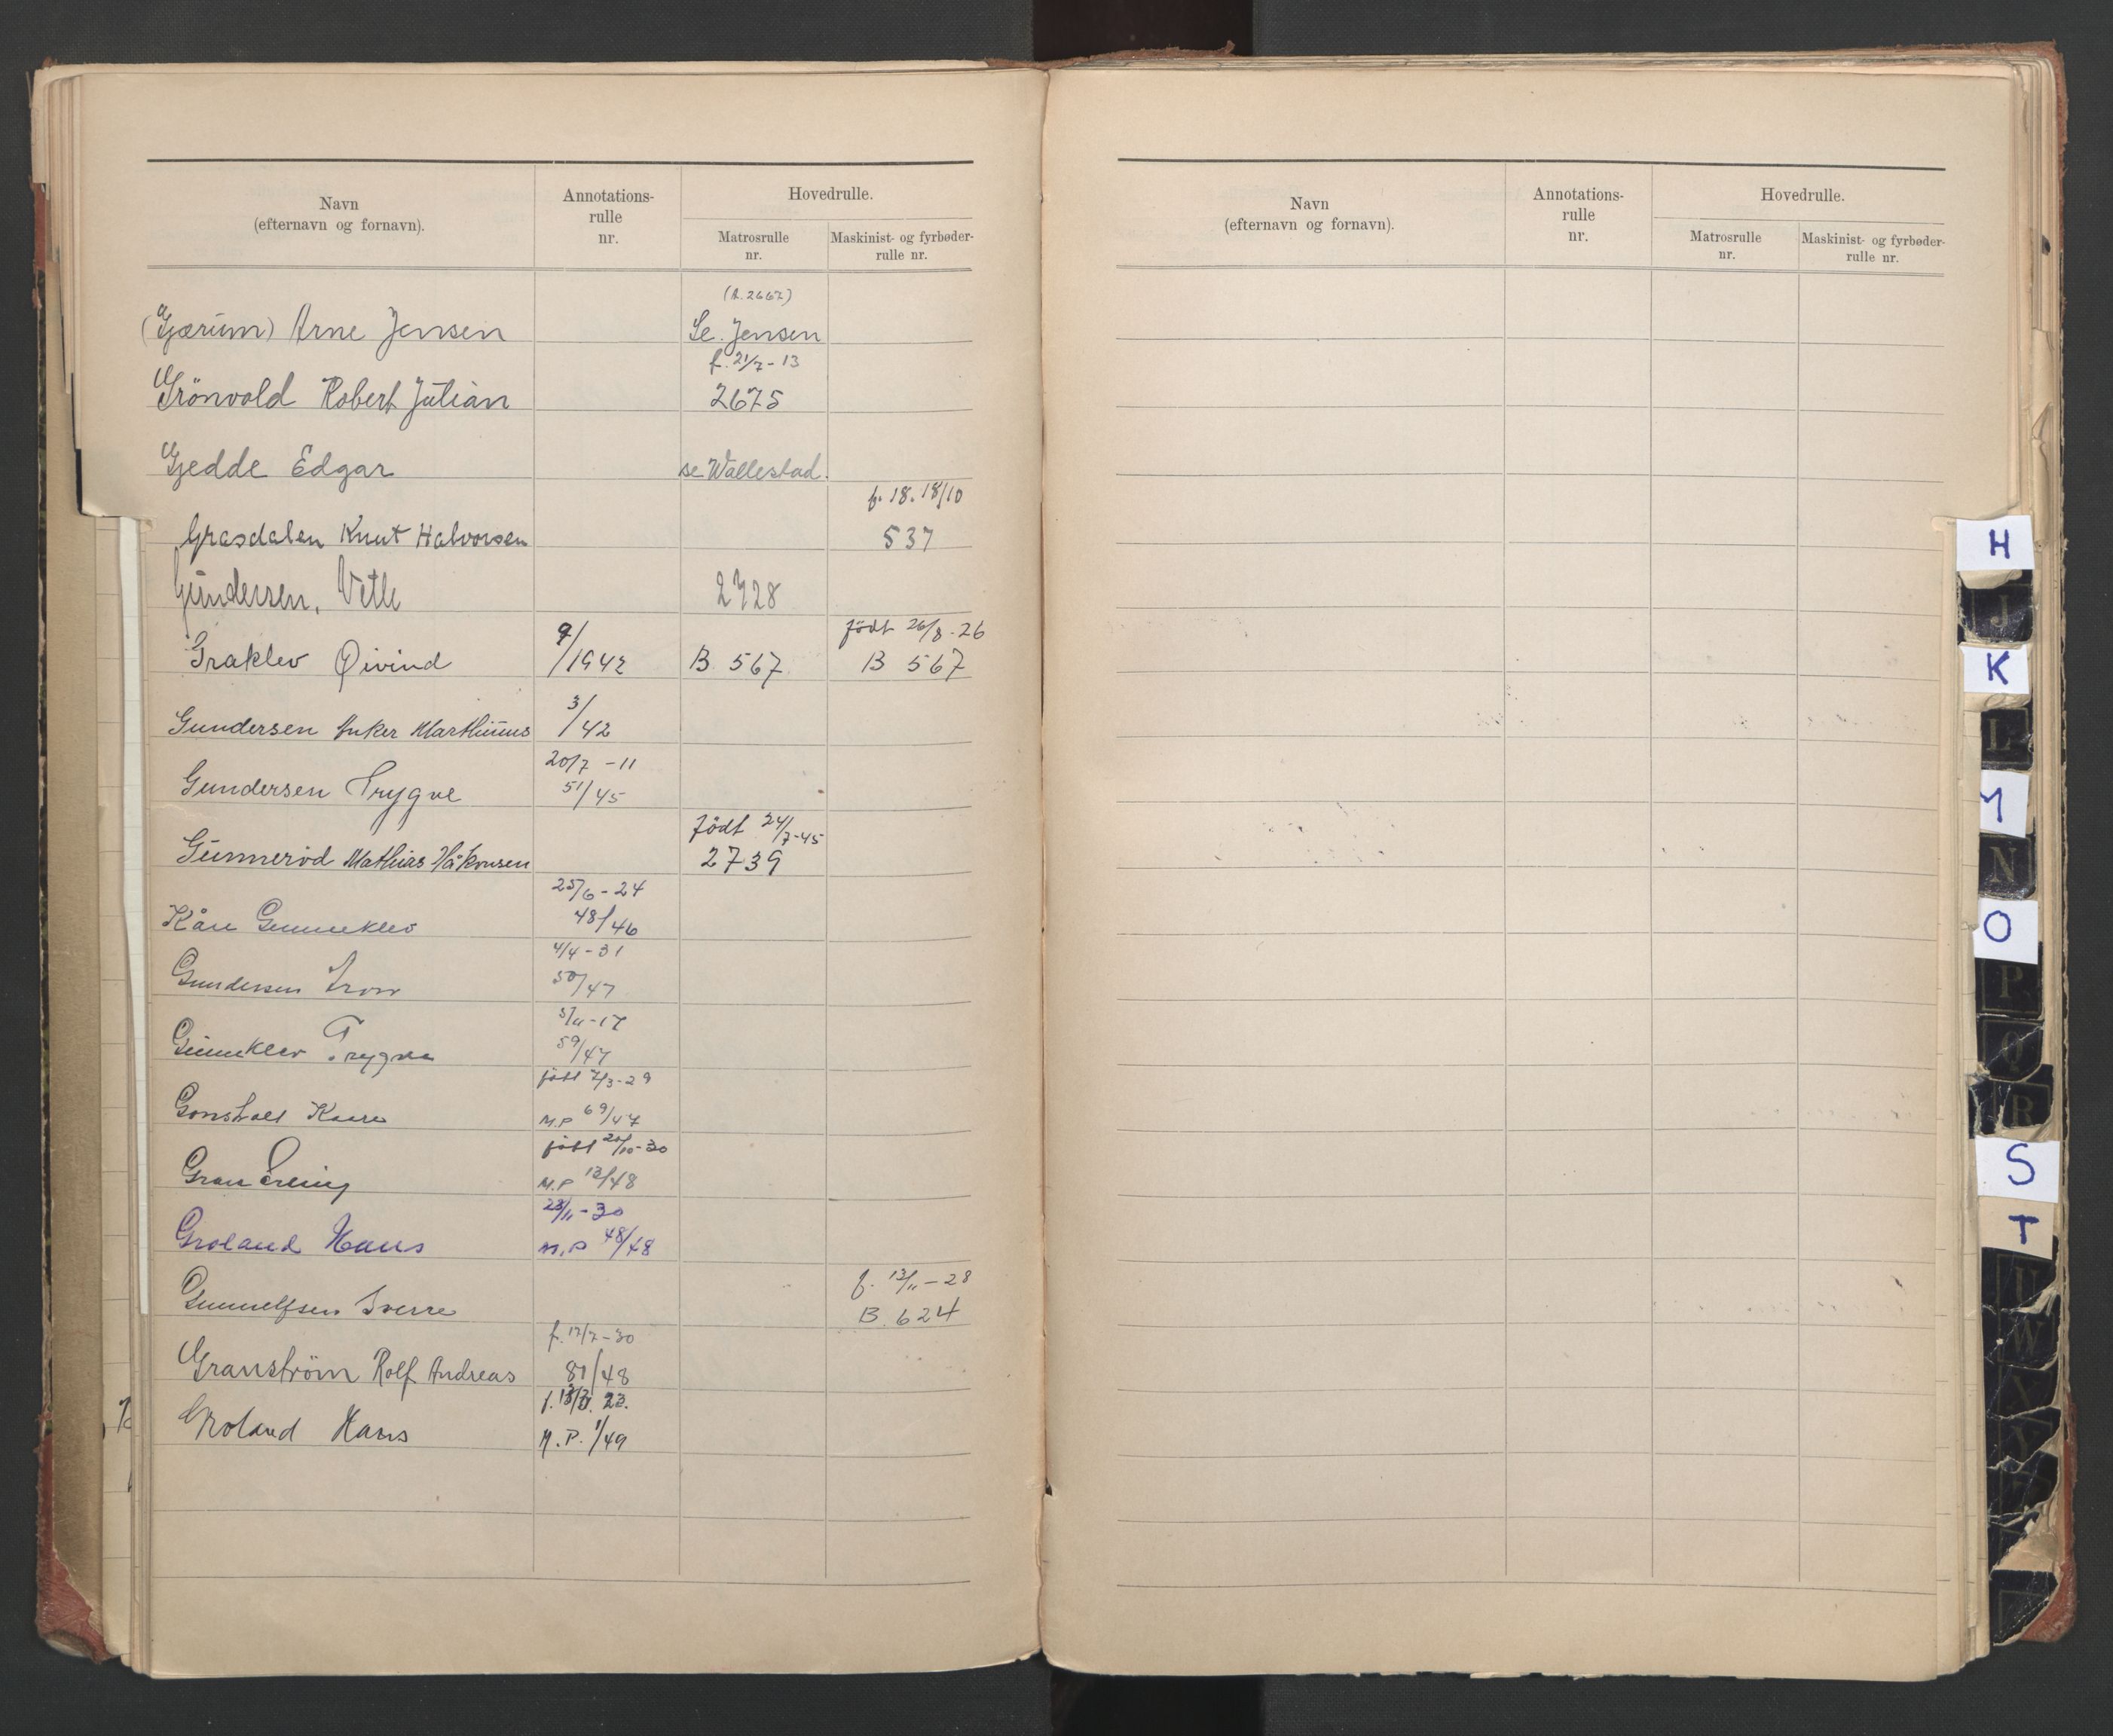 Navn
(efternavn og fornavn).
Annotations-
rulle
nr.
Hovedrulle.
Matrosrulle
nr.
Maskinist- og fyrbøder-
rulle nr.
(A. 2667)
(Gjærum) Arne Jensen Se. Jensen
f. 21/7 - 13
Grönvold Robert Julian 2675
Gjedde Edgar se Wallestad.
f. 18. 18/10
Grasdalen Knut Halvorsen 537
Gundersen, Vetle 2728
født 26/8 - 26
Graklev Øivind 9/1942 B 567 B 567
Gundersen Anker Marthinius 3/42
20/7 - 11
Gundersen Trygve 51/45
Født 24/7-45
Gunnerød Mathias Håkonsen 2739
25/6 - 24
Kåre Gunneklev 48/46
4/4 - 31
Gundersen 50/47
- 17
Gunneklev Trygve 59/47
født 2/3 - 29
Gonsholt Kaare M.P 69/47
født 20/10 - 30
Gran Erling M.P 13/48
23/11 - 30
Groland Hans M.P 48/48
f. 13/11 - 28
Gunnulfsen Sverre B. 624
f. 17/7 - 30
Granström Rolf Andreas 81/48
f. 23.
Groland Hans M.P. 1/49
Navn
(efternavn og fornavn).
Annotations-
rulle
nr.
Hovedrulle.
Matrosrulle
nr.
Maskinist- og fyrbøder-
rulle nr.
H
J
K
L
M
N
O
P
Q
R
S
T
U
W
X
Y